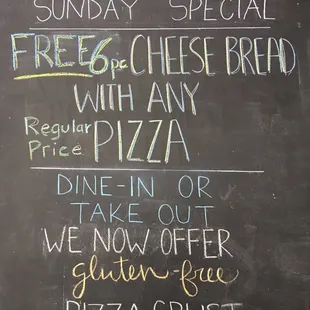 SUNDAY SPECIAL
FREE 6pc CHEESE BREAD
WITH ANY
Regular Price PIZZA
DINE-IN OR
TAKE OUT
WE NOW OFFER
gluten-free
PIZZA CRUST